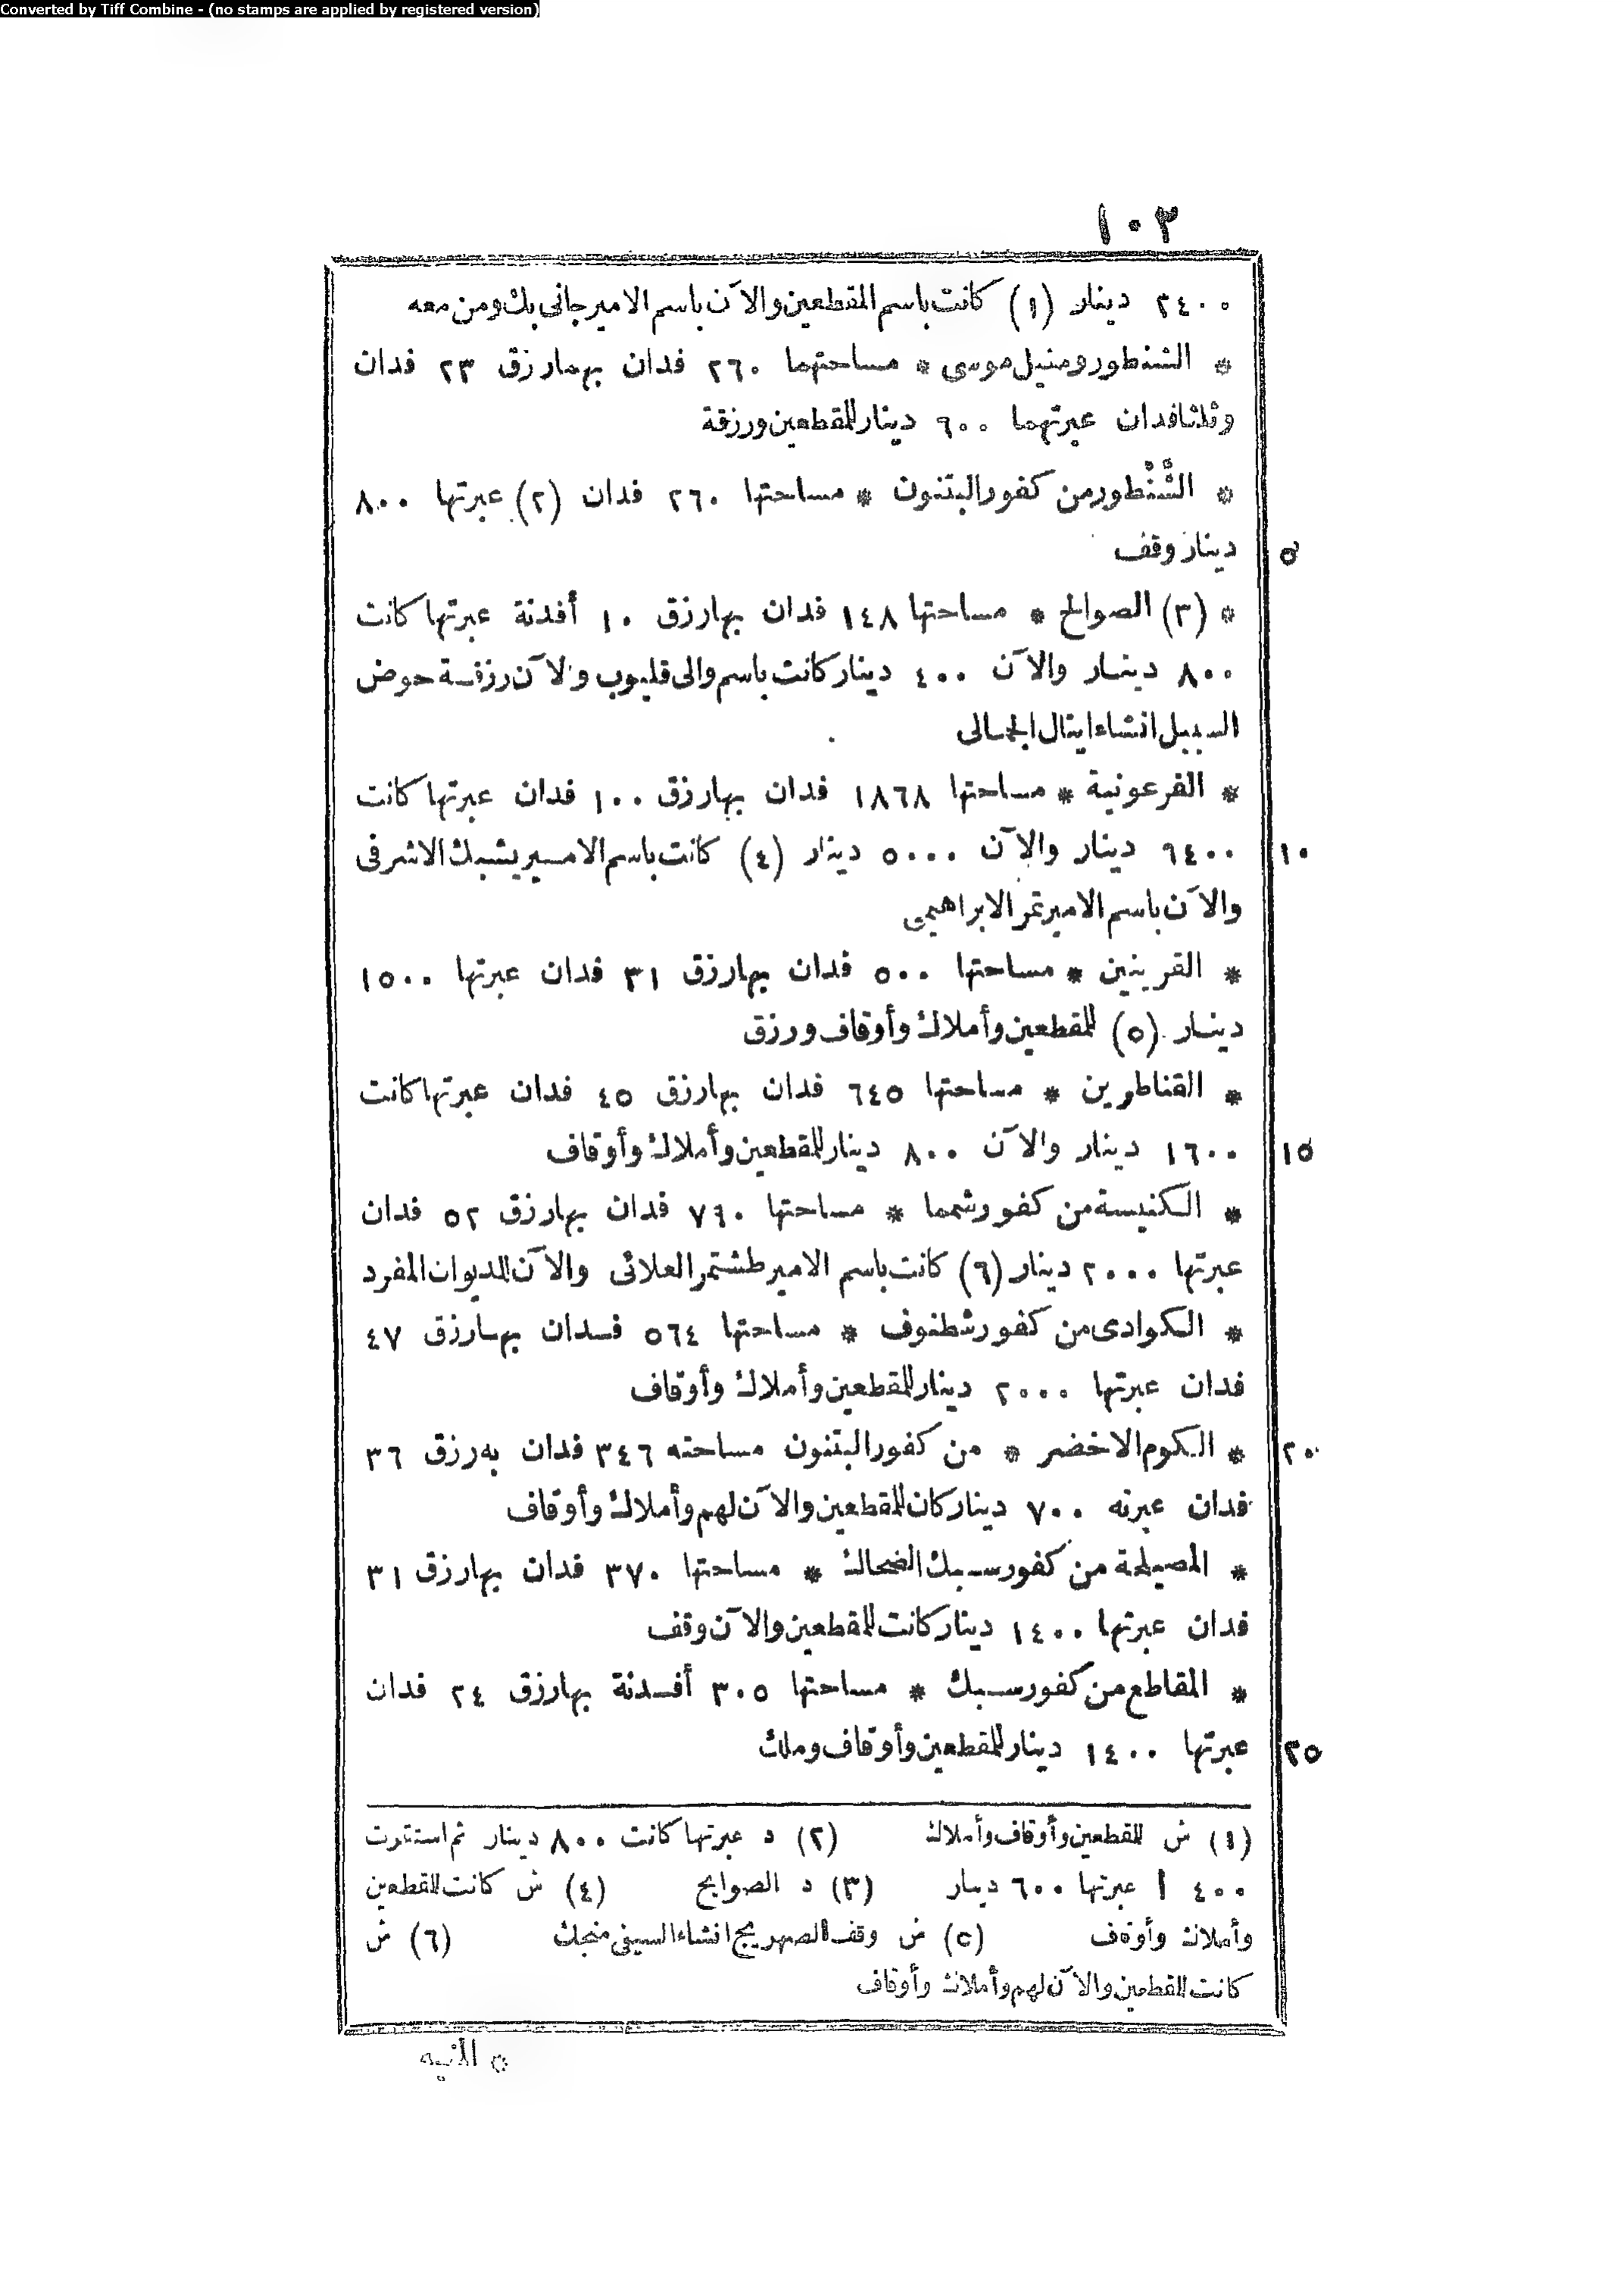 Converted by Tiff Combine - (no stamps are applied by registered version)
١٠٣
٢٤٠٠ دينار (١) كانت باسم المقطعين والآن باسم الامير جانى بك ومن معه
* الشنطور ومنيل موسى * مساحتهما ٢٦٠ فدان بهما رزق ٢٣ فدان
وثلثا فدان عبرتهما ٦٠٠ دينار للمقطعين ورزقة
* الشُّنْطور من كفور البتنون * مساحتها ٢٦٠ فدان (٢) عبرتها ٨٠٠
دينار وقف ٥
* (٣) الصوالح * مساحتها ١٤٨ فدان بها رزق ١٠ أفدنة عبرتها كانت
٨٠٠ دينار والآن ٤٠٠ دينار كانت باسم والى قليوب والآن رزقة حوض
السبيل انشاء اينال الجمالى
* الفرعونية * مساحتها ١٨٦٨ فدان بها رزق ١٠٠ فدان عبرتها كانت
٦٤٠٠ دينار والآن ٥٠٠٠ دينار (٤) كانت باسم الامير يشبك الاشرفى ١٠
والآن باسم الامير تمر الابراهيمى
* القرينين * مساحتها ٥٠٠ فدان بها رزق ٣١ فدان عبرتها ١٥٠٠
دينار (٥) للمقطعين وأملاك وأوقاف ورزق
* القناطرين * مساحتها ٦٤٥ فدان بها رزق ٤٥ فدان عبرتها كانت
١٦٠٠ دينار والآن ٨٠٠ دينار للمقطعين وأملاك وأوقاف ١٥
* الكنيسة من كفور شما * مساحتها ٧٦٠ فدان بها رزق ٥٢ فدان
عبرتها ٢٠٠٠ دينار (٦) كانت باسم الامير طشتمر العلائى والآن للديوان المفرد
* الكوادى من كفور شطنوف * مساحتها ٥٦٤ فدان بها رزق ٤٧
فدان عبرتها ٢٠٠٠ دينار للمقطعين وأملاك وأوقاف
* الكوم الاخضر * من كفور البتنون مساحته ٣٤٦ فدان به رزق ٣٦ ٢٠
فدان عبرته ٧٠٠ دينار كان للمقطعين والآن لهم وأملاك وأوقاف
* المصيلحة من كفور سبك الضحاك * مساحتها ٣٧٠ فدان بها رزق ٣١
فدان عبرتها ١٤٠٠ دينار كانت للمقطعين والآن وقف
* المقاطع من كفور سبك * مساحتها ٣٠٥ أفدنة بها رزق ٢٤ فدان
عبرتها ١٤٠٠ دينار للمقطعين وأوقاف وملك ٢٥
(١) ش للمقطعين وأوقاف وأملاك (٢) د عبرتها كانت ٨٠٠ دينار ثم استقرت
٤٠٠ ا عبرتها ٦٠٠ دينار (٣) د الصوابح (٤) ش كانت للمقطعين
وأملاك وأوقاف (٥) ش وقف الصهريج انشاء السيفى منجك (٦) ش
كانت للمقطعين والآن لهم وأملاك وأوقاف
* المنيه